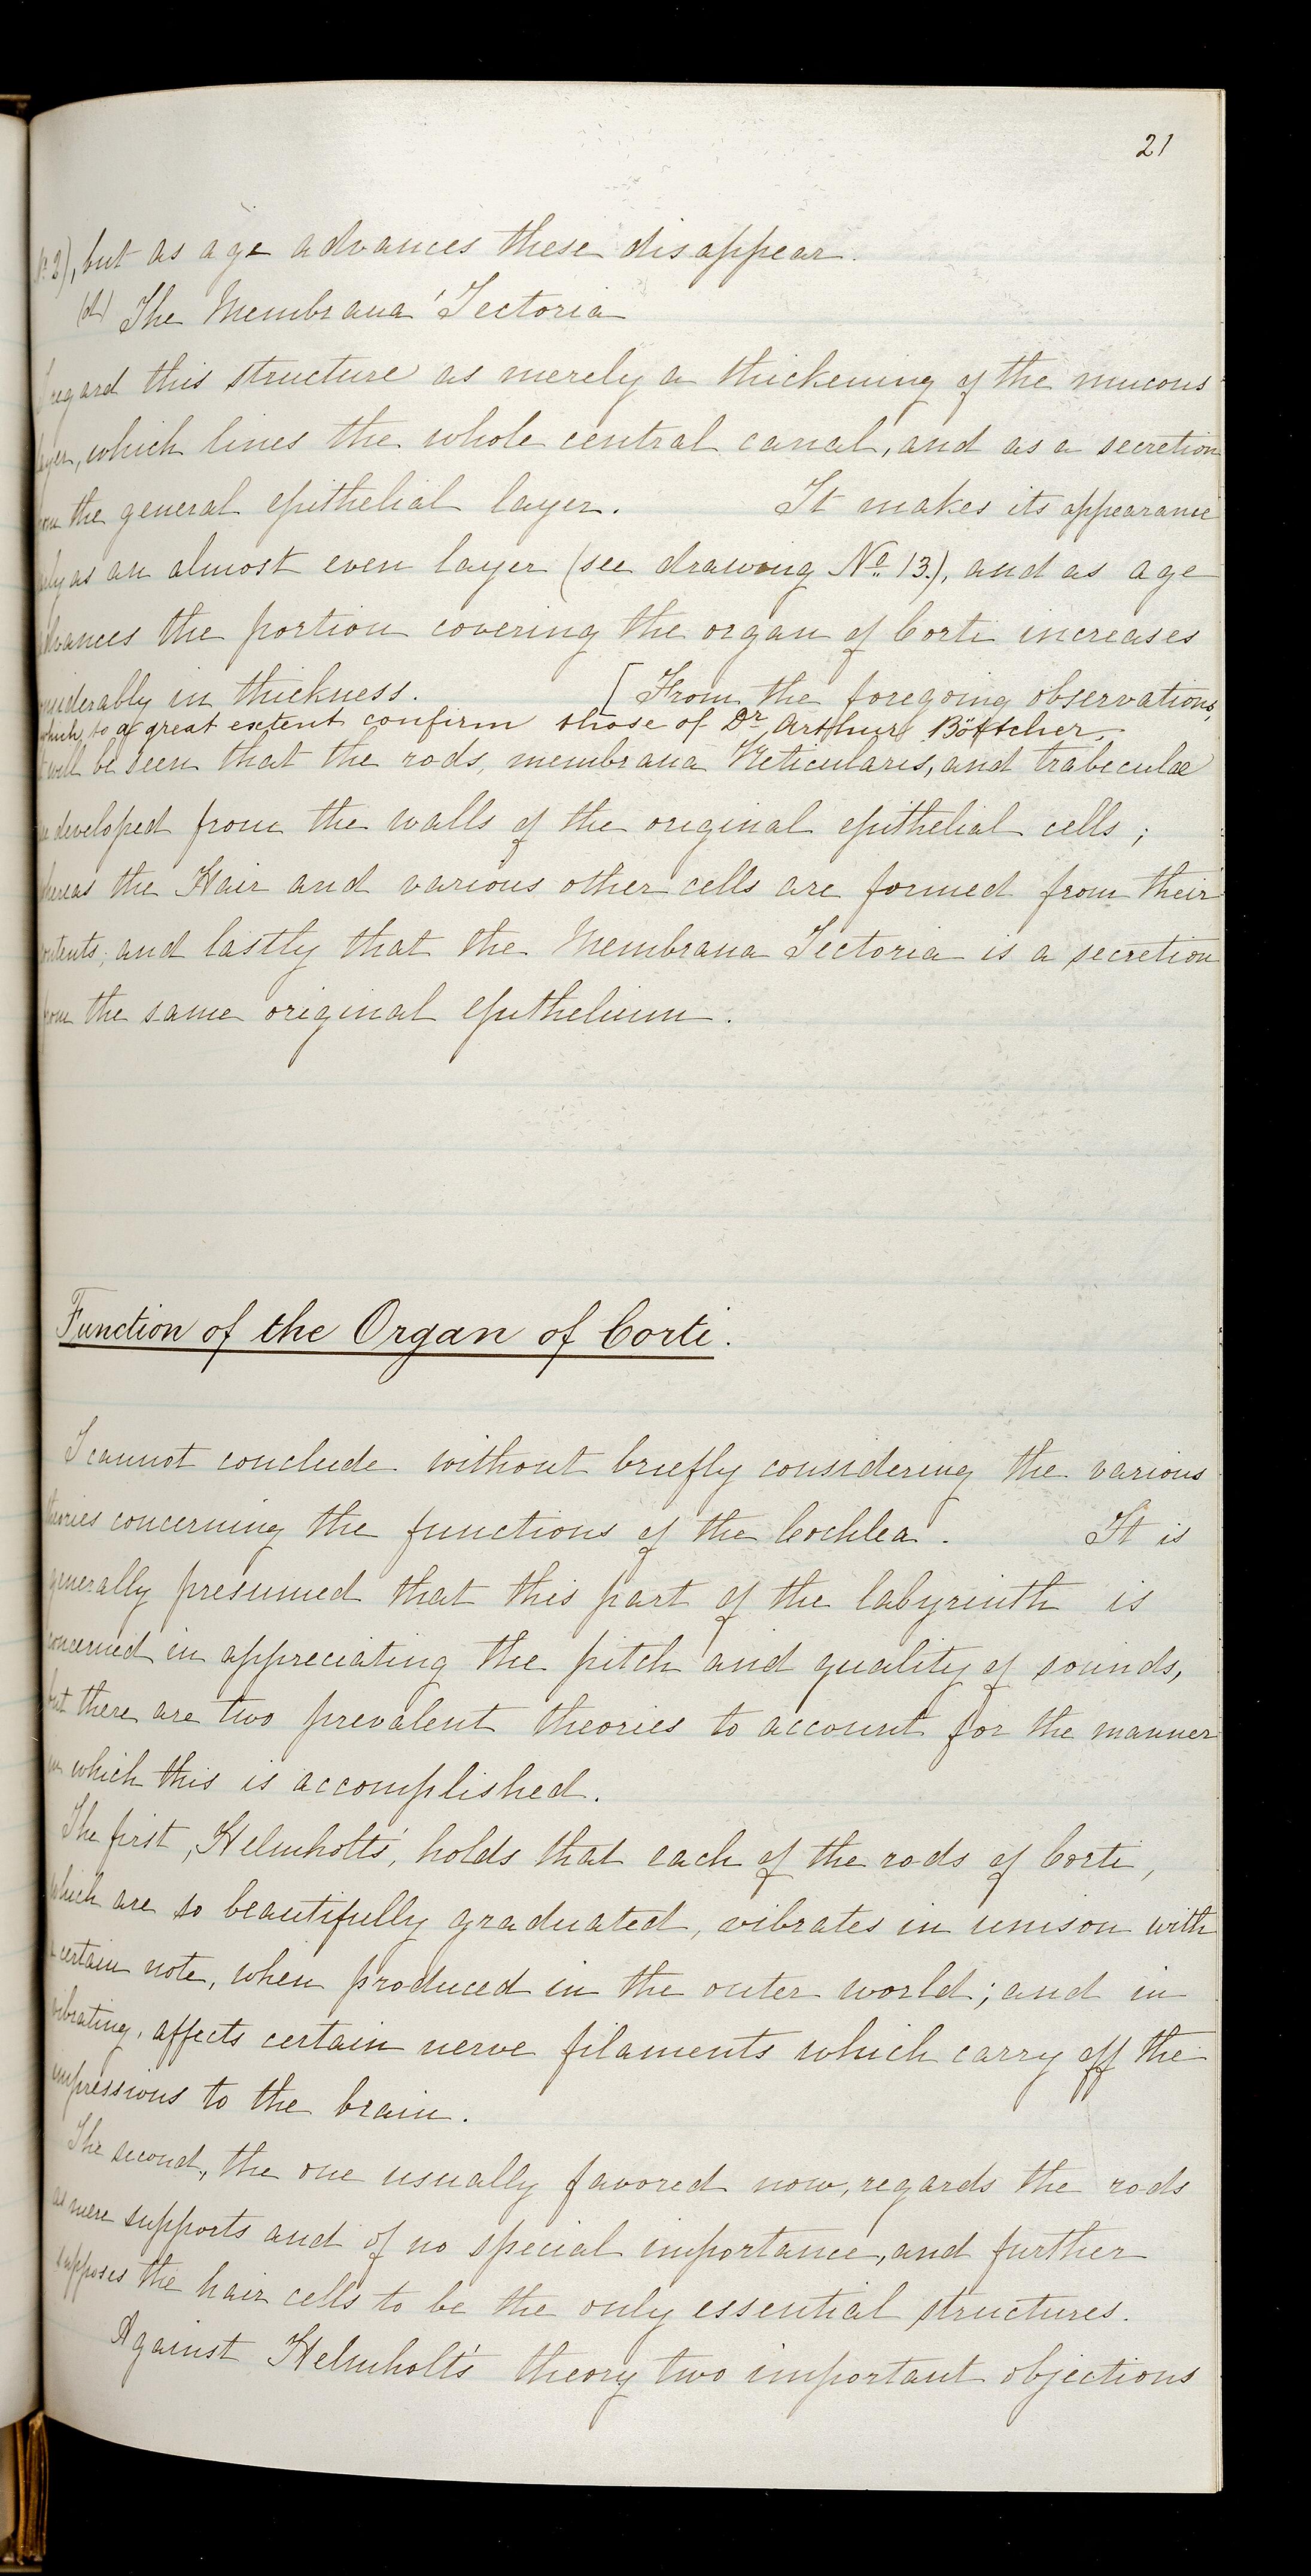 21
but as age advances these disappear.
(d) The Membrana Tectoria
I regard this structure as merely a thickening of the mucous
layer, which lines the whole central canal, and as a secretion
from the general epithelial layer. It makes its appearance
early as an almost even layer (see drawing No. 13.), and as age
advances the portion covering the organ of Corti increases
considerably in thickness. [From the foregoing observations,
which, to a great extent confirm those of Dr. Arthur Böttcher,
it will be seen that the rods, membrana Reticularis, and trabeculae
are developed from the walls of the original epithelial cells;
whereas the Hair and various other cells are formed from their
contents; and lastly that the Membrana Tectoria is a secretion
from the same original epithelium.
Function of the Organ of Corti.
I cannot conclude without briefly considering the various
theories concerning the functions of the Cochlea. It is
generally presumed that this part of the labyrinth is
concerned in appreciating the pitch and quality of sounds,
but there are two prevalent theories to account for the manner
in which this is accomplished.
The first, Helmholts', holds that each of the rods of Corti,
which are so beautifully graduated, vibrates in unison with
a certain note, when produced in the outer world; and in
vibrating, affects certain nerve filaments which carry off the
impressions to the brain.
The second, the one usually favored now, regards the rods
as mere supports and of no special importance, and further
supposes the hair cells to be the only essential structures.
Against Helmholt's theory two important objections